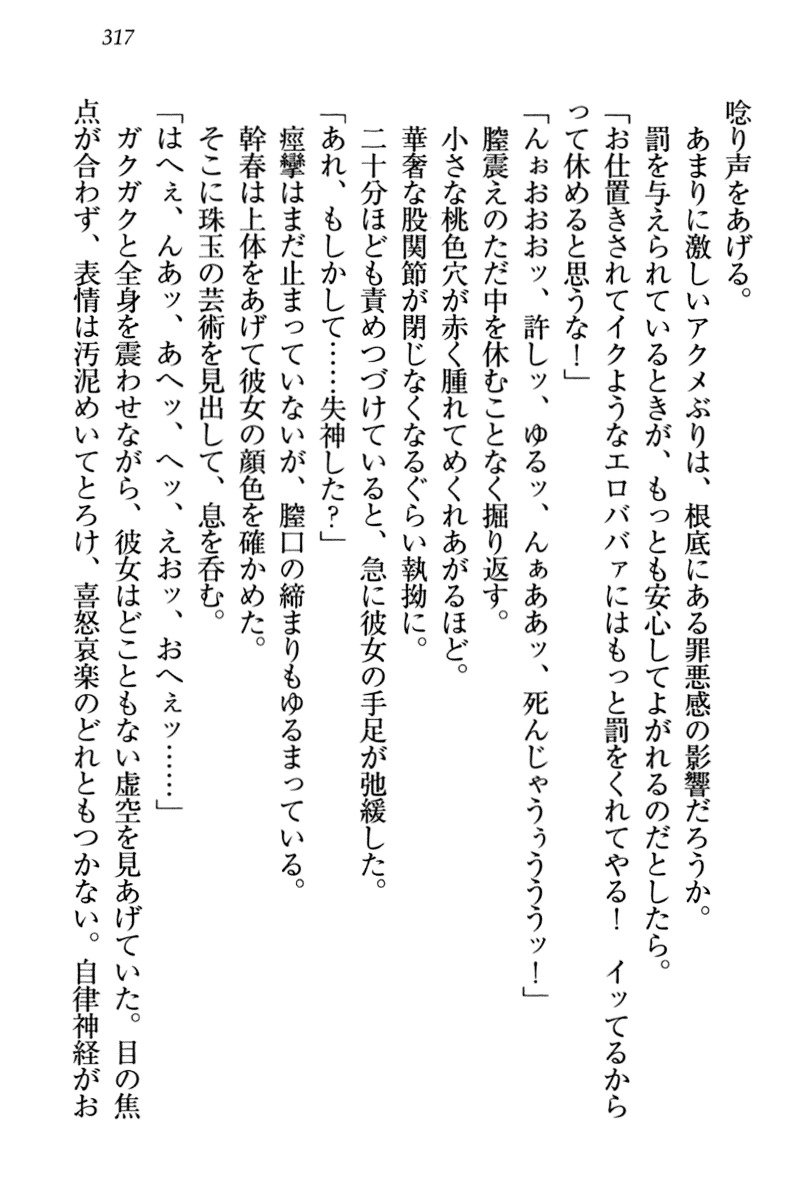 317
唸り声をあげる。
あまりに激しいアクメぶりは、根底にある罪悪感の影響だろうか。
罰を与えられているときが、もっとも安心してよがれるのだとしたら。
「お仕置きされてイクようなエロババァにはもっと罰をくれてやる！　イッてるから
って休めると思うな！」
「んぉおおおッ、許しッ、ゆるッ、んぁああッ、死んじゃうぅうううッ！」
膣震えのただ中を休むことなく掘り返す。
小さな桃色穴が赤く腫れてめくれあがるほど。
華奢な股関節が閉じなくなるぐらい執拗に。
二十分ほども責めつづけていると、急に彼女の手足が弛緩した。
「あれ、もしかして……失神した？」
痙攣はまだ止まっていないが、膣口の締まりもゆるまっている。
幹春は上体をあげて彼女の顔色を確かめた。
そこに珠玉の芸術を見出して、息を呑む。
「はへぇ、んあッ、あヘッ、ヘッ、えおッ、おへぇッ……」
ガクガクと全身を震わせながら、彼女はどこともない虚空を見あげていた。目の焦
点が合わず、表情は汚泥めいてとろけ、喜怒哀楽のどれともつかない。自律神経がお